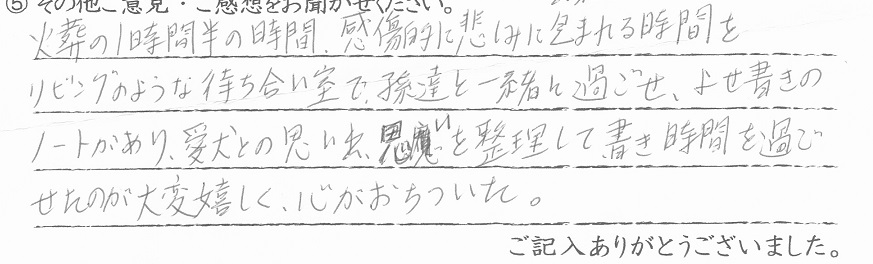 ⑤ その他ご意見・ご感想をお聞かせください。
火葬の1時間半の時間、感傷的に悲しみに包まれる時間を
リビングのような待ち合い室で、孫達と一緒に過ごせ、よせ書きの
ノートがあり、愛犬との思い出、思いを整理して書き時間を過ご
せたのが大変嬉しく、心がおちついた。
ご記入ありがとうございました。